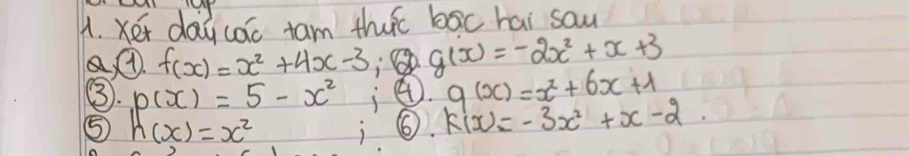 1. Xét dấu các tam thức bậc hai sau
a, ①. f(x) = x² + 4x - 3; ②. g(x) = -2x² + x + 3
③. p(x) = 5 - x² ; ④. q(x) = x² + 6x + 1
⑤ h(x) = x² ; ⑥. k(x) = -3x² + x - 2.